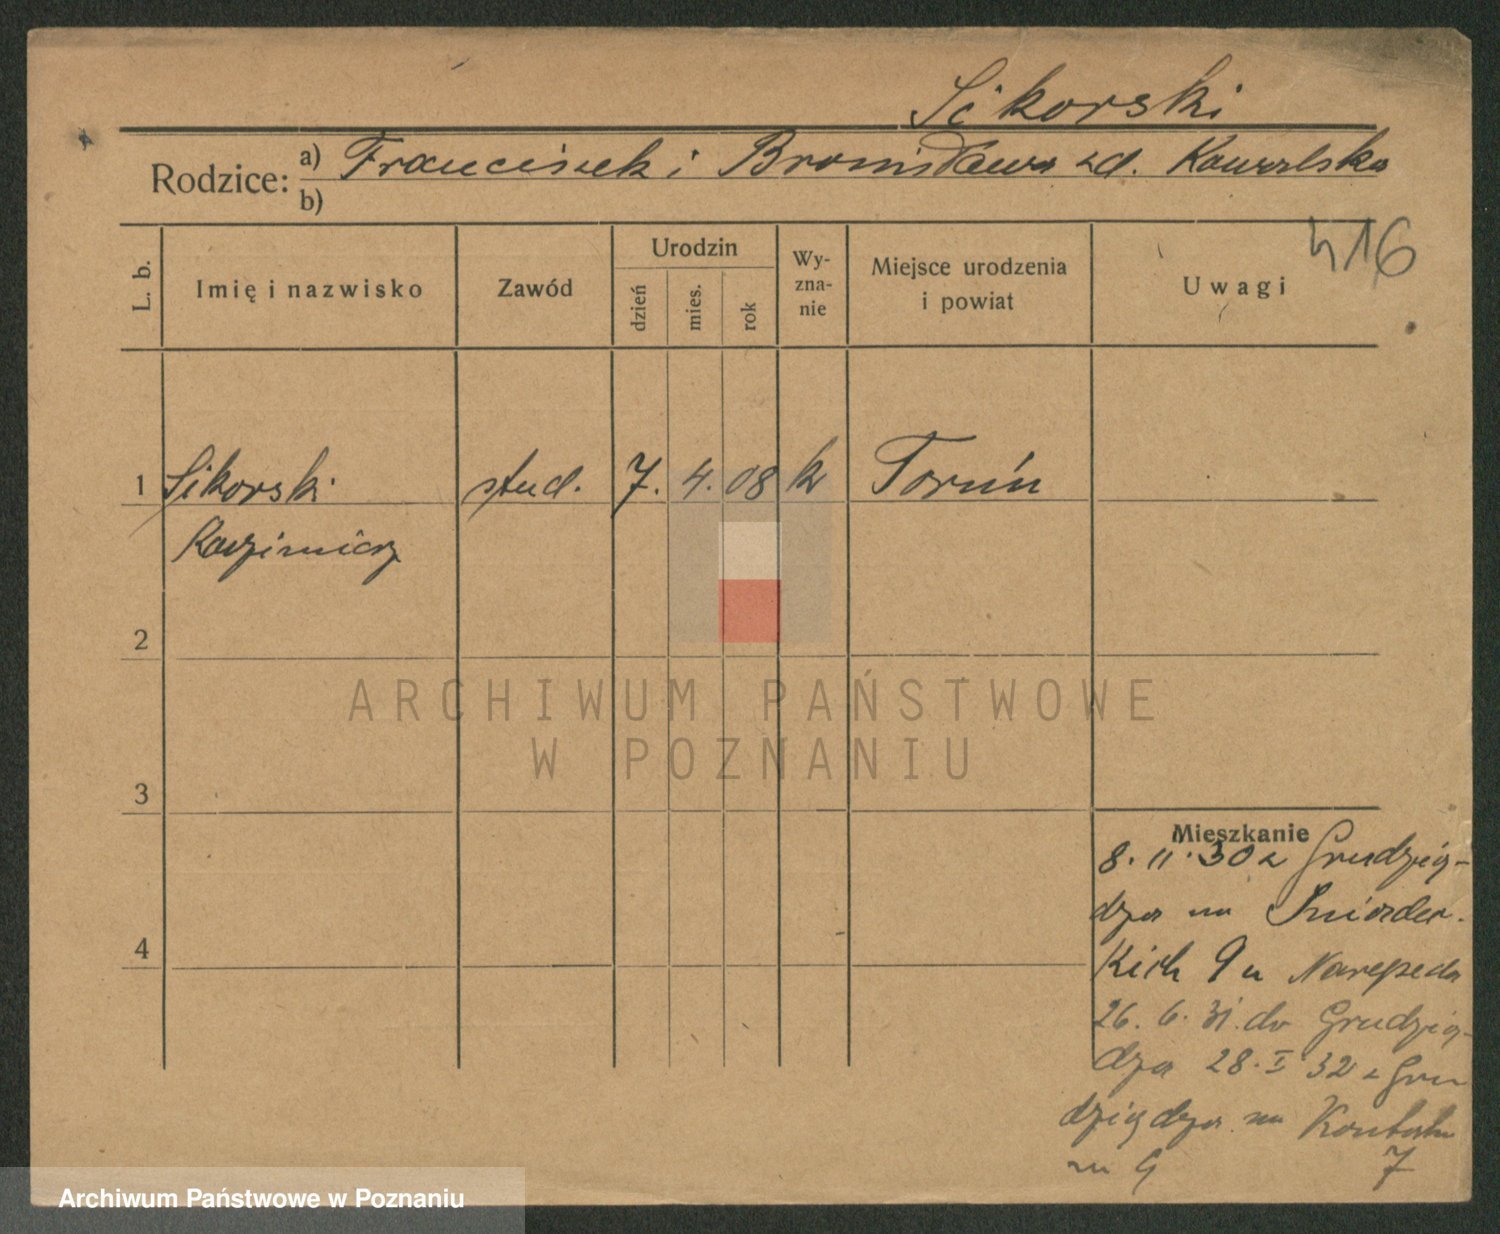 Sikorski
Rodzice: a) Franciszek i Bronisława zd. Kowalska
b)
416
L. b.
Imię i nazwisko
Zawód
Urodzin
dzień
mies.
rok
Wy-
zna-
nie
Miejsce urodzenia
i powiat
Uwagi
1 Sikorski stud. 7. 4. 08 k Toruń
Kazimierz
2
3
4
ARCHIWUM PAŃSTWOWE
W POZNANIU
Mieszkanie
8. 11. 30 z Grudzią-
dza na Śniadec-
kich 9 u
26. 6. 31. do Grudzią-
dza 28. I 32 z Gru
dziądza na
m 9 7
Archiwum Państwowe w Poznaniu